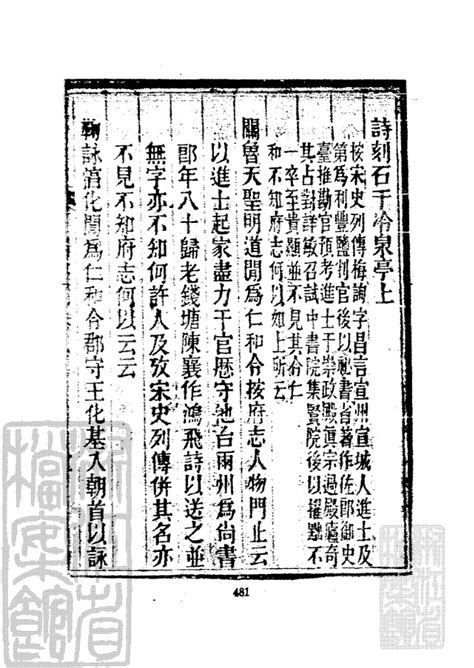 詩刻石于冷泉亭上
按宋史列傳梅詢字昌言宣州宣城人進士及
第爲利豐鹽判官後以祕書省著作佐郎御史
臺推勘官預考進士于崇政殿眞宗過殿廬奇
其占對詳敏召試中書院集賢院後以擢黜不
一卒至貴顯並不見其令仁
和不知府志何以如上所云
關魯天聖明道間爲仁和令按府志人物門止云
以進士起家盡力于官歷守池台兩州爲尚書
郎年八十歸老錢塘陳襄作鴻飛詩以送之並
無字亦不知何許人及攷宋史列傳併其名亦
不見不知府志何以云云
鞠詠淳化間爲仁和令郡守王化基入朝首以詠
481
浙江省
檔案館